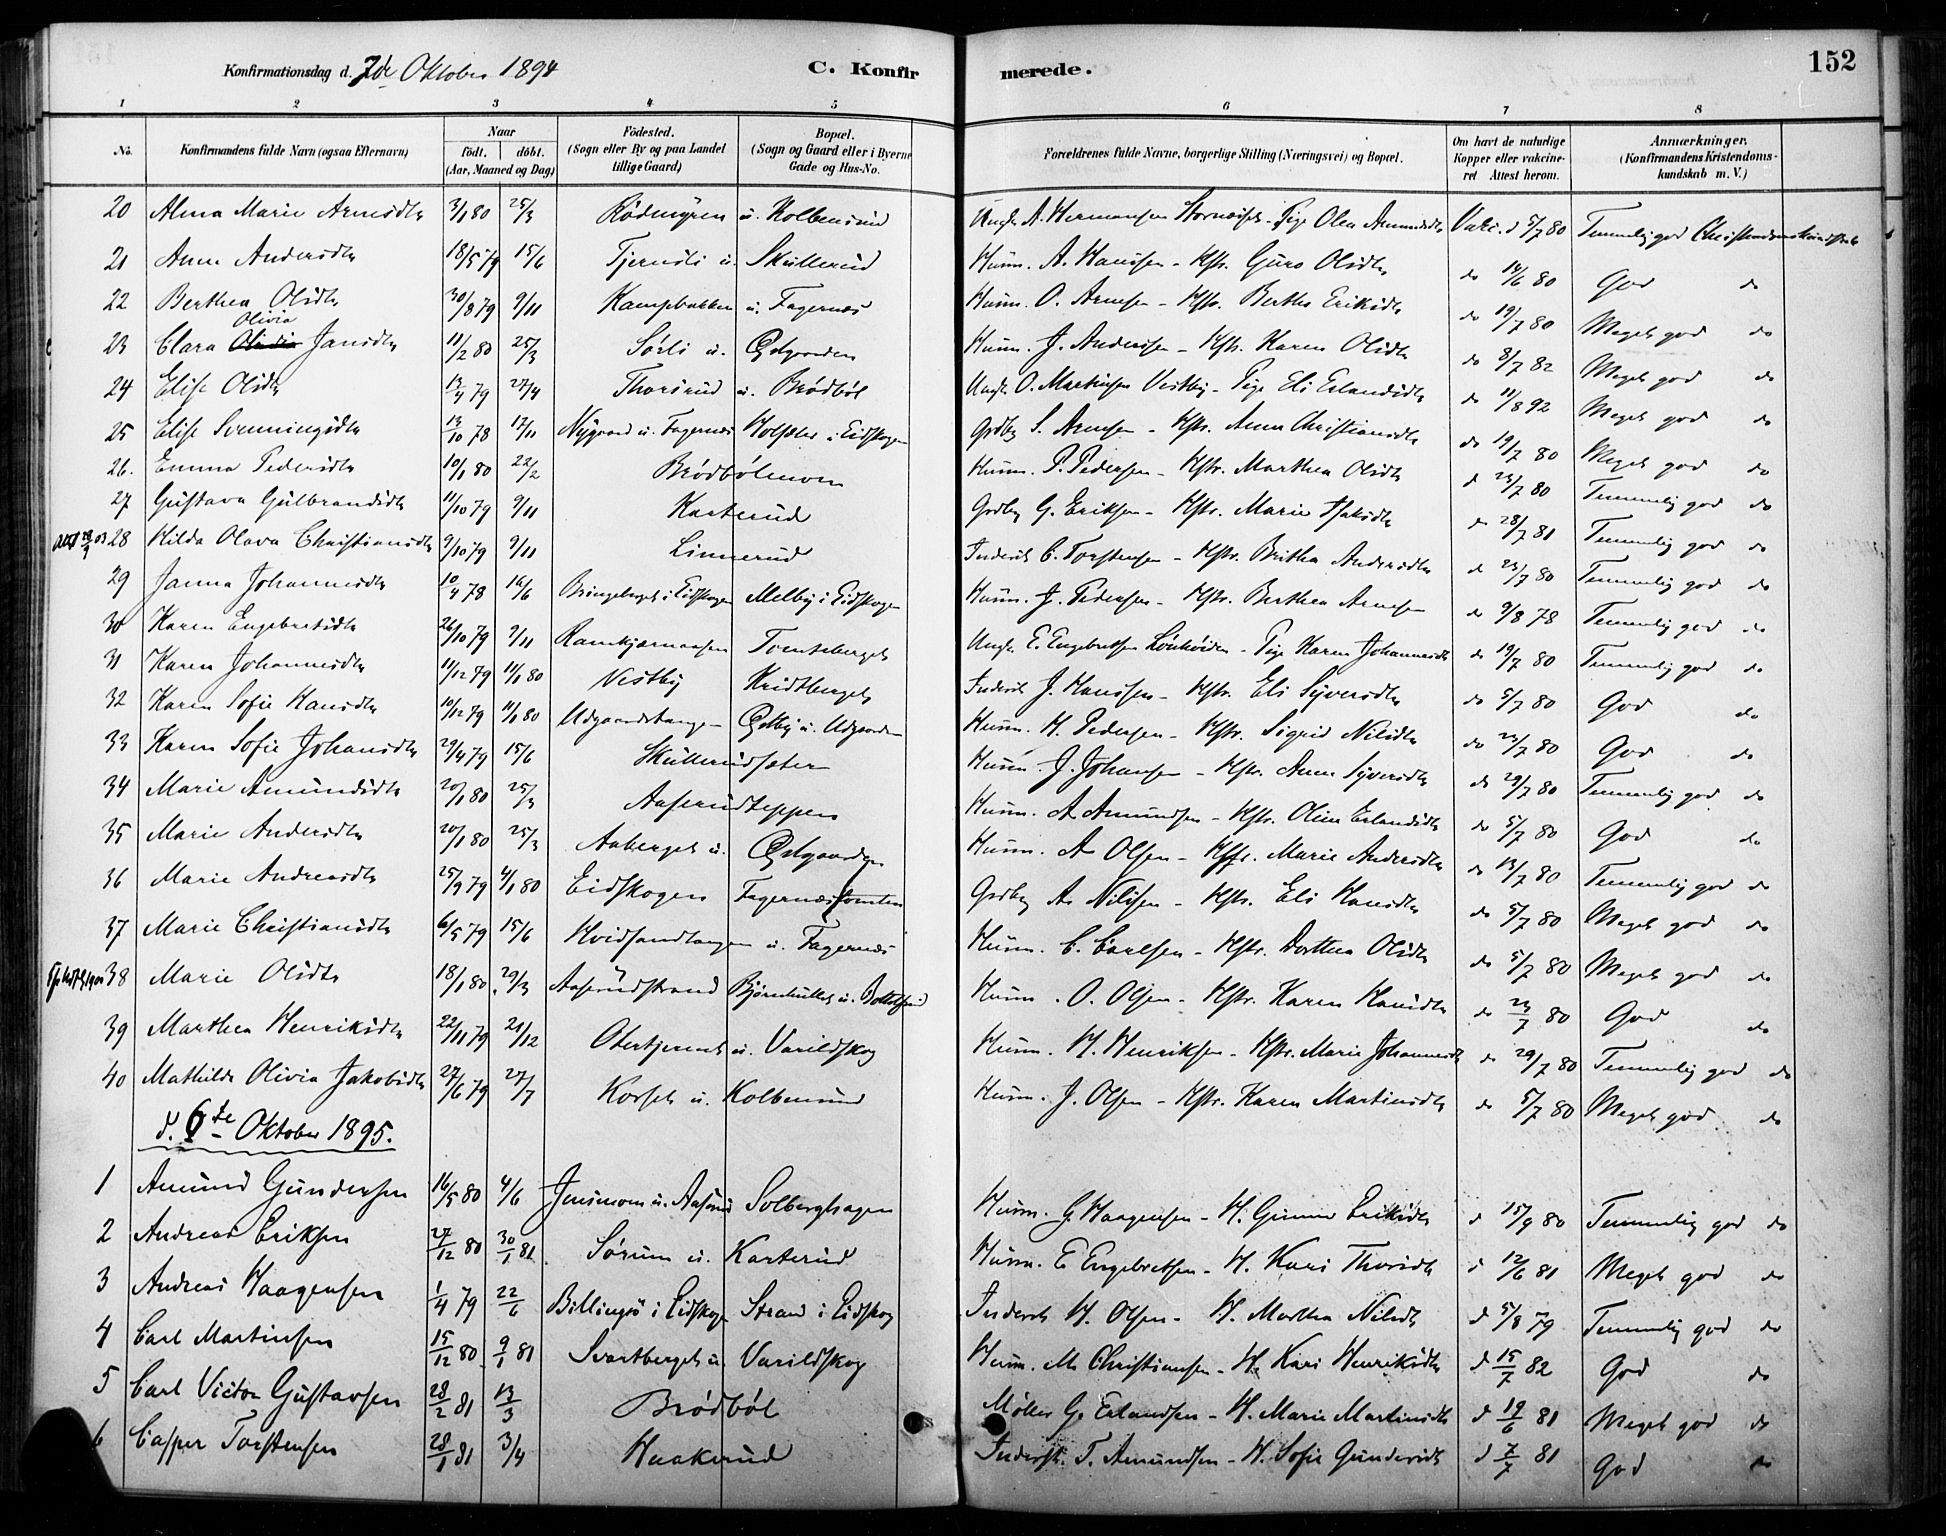 Konfirmationsdag d. 7de Oktober 1894 C. Konfirmerede. 152
1 2 3 4 5 6 7 8
No. Konfirmandens fulde Navn (ogsaa Efternavn) Naar födt. döbt. (Aar, Maaned og Dag) Födested. (Sogn eller By og paa Landet tillige Gaard) Bopæl. (Sogn og Gaard eller i Byerne Gade og Hus-No. Forældrenes fulde Navne, borgerlige Stilling (Næringsvei) og Bopæl. Om havt de naturlige Kopper eller vakcineret Attest herom. Anmærkninger. (Konfirmandens Kristendomskundskab m. V.)
20 Alma Marie Arnesdtr 3/1 80 25/3 Rödmyren u. Kolbensrud Ungk. A. Hermansen - Pige Olea Amundsdtr Vacc. d 5/7 80 Temmelig god Christendomskundskab
21 Anne Andersdtr 18/5 79 15/6 Tjernsli u. Skullerud Husm. A. Hansen - Hstr. Guro Olsdtr do 14/6 80 God do
22 Berthea Olsdtr 30/8 79 9/11 Kampebakken u. Fagernæs Husm. O. Arnesen - Hstr. Berthe Eriksdtr do 19/7 80 Meget god do
23 Clara Olivia Jansdtr 11/2 80 25/3 Sörli u. Østgaarden Husm. J. Andersen - Hstr. Karen Olsdtr do 8/7 82 Meget god do
24 Elise Olsdtr 13/4 79 27/4 Thorsrud u. Brødbøl Ungk. O. Martinsen Vestby - Pige Eli Erlandsdtr do 11/8 92 Meget god do
25 Elise Svenningsdtr 13/10 78 17/11 Nygaard u. Fagernæs i Eidskogen Grdbr. S. Arnesen - Hstr. Anne Christiansdtr do 19/7 80 Meget god do
26. Emma Pedersdtr 10/1 80 22/2 Brødbølmoen Husm. P. Pedersen - Hstr. Marthea Olsdtr d 23/7 80 Temmelig god do
27 Gustava Gulbrandsdtr 11/10 79 9/11 Karterud Grdbr. G. Eriksen - Hstr. Marie Isaksdtr do 28/7 81 Temmelig god do
28 Hilda Olava Christiansdtr 9/10 79 9/11 Linnerud Inderst C. Torstensen - Hstr. Brithe Andersdtr d 23/7 80 Temmelig god do
29 Janna Johannesdtr 10/4 78 16/6 i Eidskogen Melby i Eidskogen Husm. J. Pedersen - Hstr. Berthea Arnesen do 9/8 78 Temmelig god do
30 Karen Engebretsdtr 26/10 79 9/11 Ramkjærnaasen Tomteberget Ungk. E. Engebretsen - Pige Karen Johannesdtr do 19/7 80 Temmelig god do
31 Karen Johannesdtr 11/12 79 11/1 80 Vestby Kridtberget Inderst J. Hansen - Hstr. Eli Syversdtr do 5/7 80 God do
32 Karen Sofie Hansdtr 10/12 79 11/1 80 Udgaardstangen Østby u. Udgaarden Husm. H. Pedersen - Hstr. Sigrid Nilsdtr do 23/7 80 God do
33 Karen Sofie Johansdtr 29/4 79 15/6 Skullerudsæter Husm. J. Johansen - Hstr. Anne Syversdtr do 29/7 80 Temmelig god do
34 Marie Amundsdtr 20/1 80 25/3 Aaserudteppen Husm. A Amundsen - Hstr. Oline Erlandsdtr do 5/7 80 God do
35 Marie Andersdtr 20/1 80 25/3 Aaberget u. Østgaarden Husm. A Olsen - Hstr. Marie Andersdtr do 13/7 80 Temmelig god do
36 Marie Andreasdtr 25/9 79 4/1 80 Eidskogen Fagernæstomten Grdbr. A. Nilsen - Hstr. Eli Hansdtr do 5/7 80 Meget god do
37 Marie Christiansdtr 6/5 79 15/6 Hvidsandtangen u. Fagernæs Husm. C. Carlsen - Hstr. Dorthea Olsdtr do 5/7 80 Meget god do
38 Marie Olsdtr 18/1 80 29/3 Aaserudstrand Bjørnhullet u. Husm. O. Olsen - Hstr. Karen Hansdtr do 23/7 80 God do
39 Marthea Henriksdtr 22/11 79 21/12 Otertjernet u. Varildskog Husm. H. Henriksen - Hstr. Marie Johannesdtr do 29/7 80 Temmelig god do
40 Mathilde Olivia Jakobsdtr 27/6 79 27/7 Korset u. Kolbensrud Husm. J. Olsen - Hstr. Karen Martinsdtr do 5/7 80 Meget god do
d. 6te Oktober 1895.
1 Amund Gundersen 16/5 80 4/6 Jensmoen u. Aaserud Solberghagen Husm. G. Haagensen - H. Gunne Eriksdtr d 15/9 80 Temmelig god do
2 Andreas Eriksen 27/12 80 30/1 81. Sørum u. Karterud Husm. E Engebretsen - H. Kari Thorsdtr d 12/6 81 Meget god do
3 Andreas Haagensen 1/4 79 22/6 Billingsö i Eidskog Strand i Eidskog Inderst H. Olsen - H. Marthea Nilsdtr d 5/8 79 Temmelig god do
4 Carl Martinsen 15/12 80 9/1 81 Svartberget u. Varildskog Husm. M. Christiansen - H. Kari Henriksdtr d 15/7 82 God do
5 Carl Victor Gustavsen 28/2 81 13/3 Brødbøl Møller G. Erlandsen - H. Marie Martinsdtr d 19/6 81 Meget god do
6 Casper Torstensen 28/1 81 3/4 Haakerud Inderst. T. Amundsen - H. Sofie Gundersdtr d 7/7 81 God do